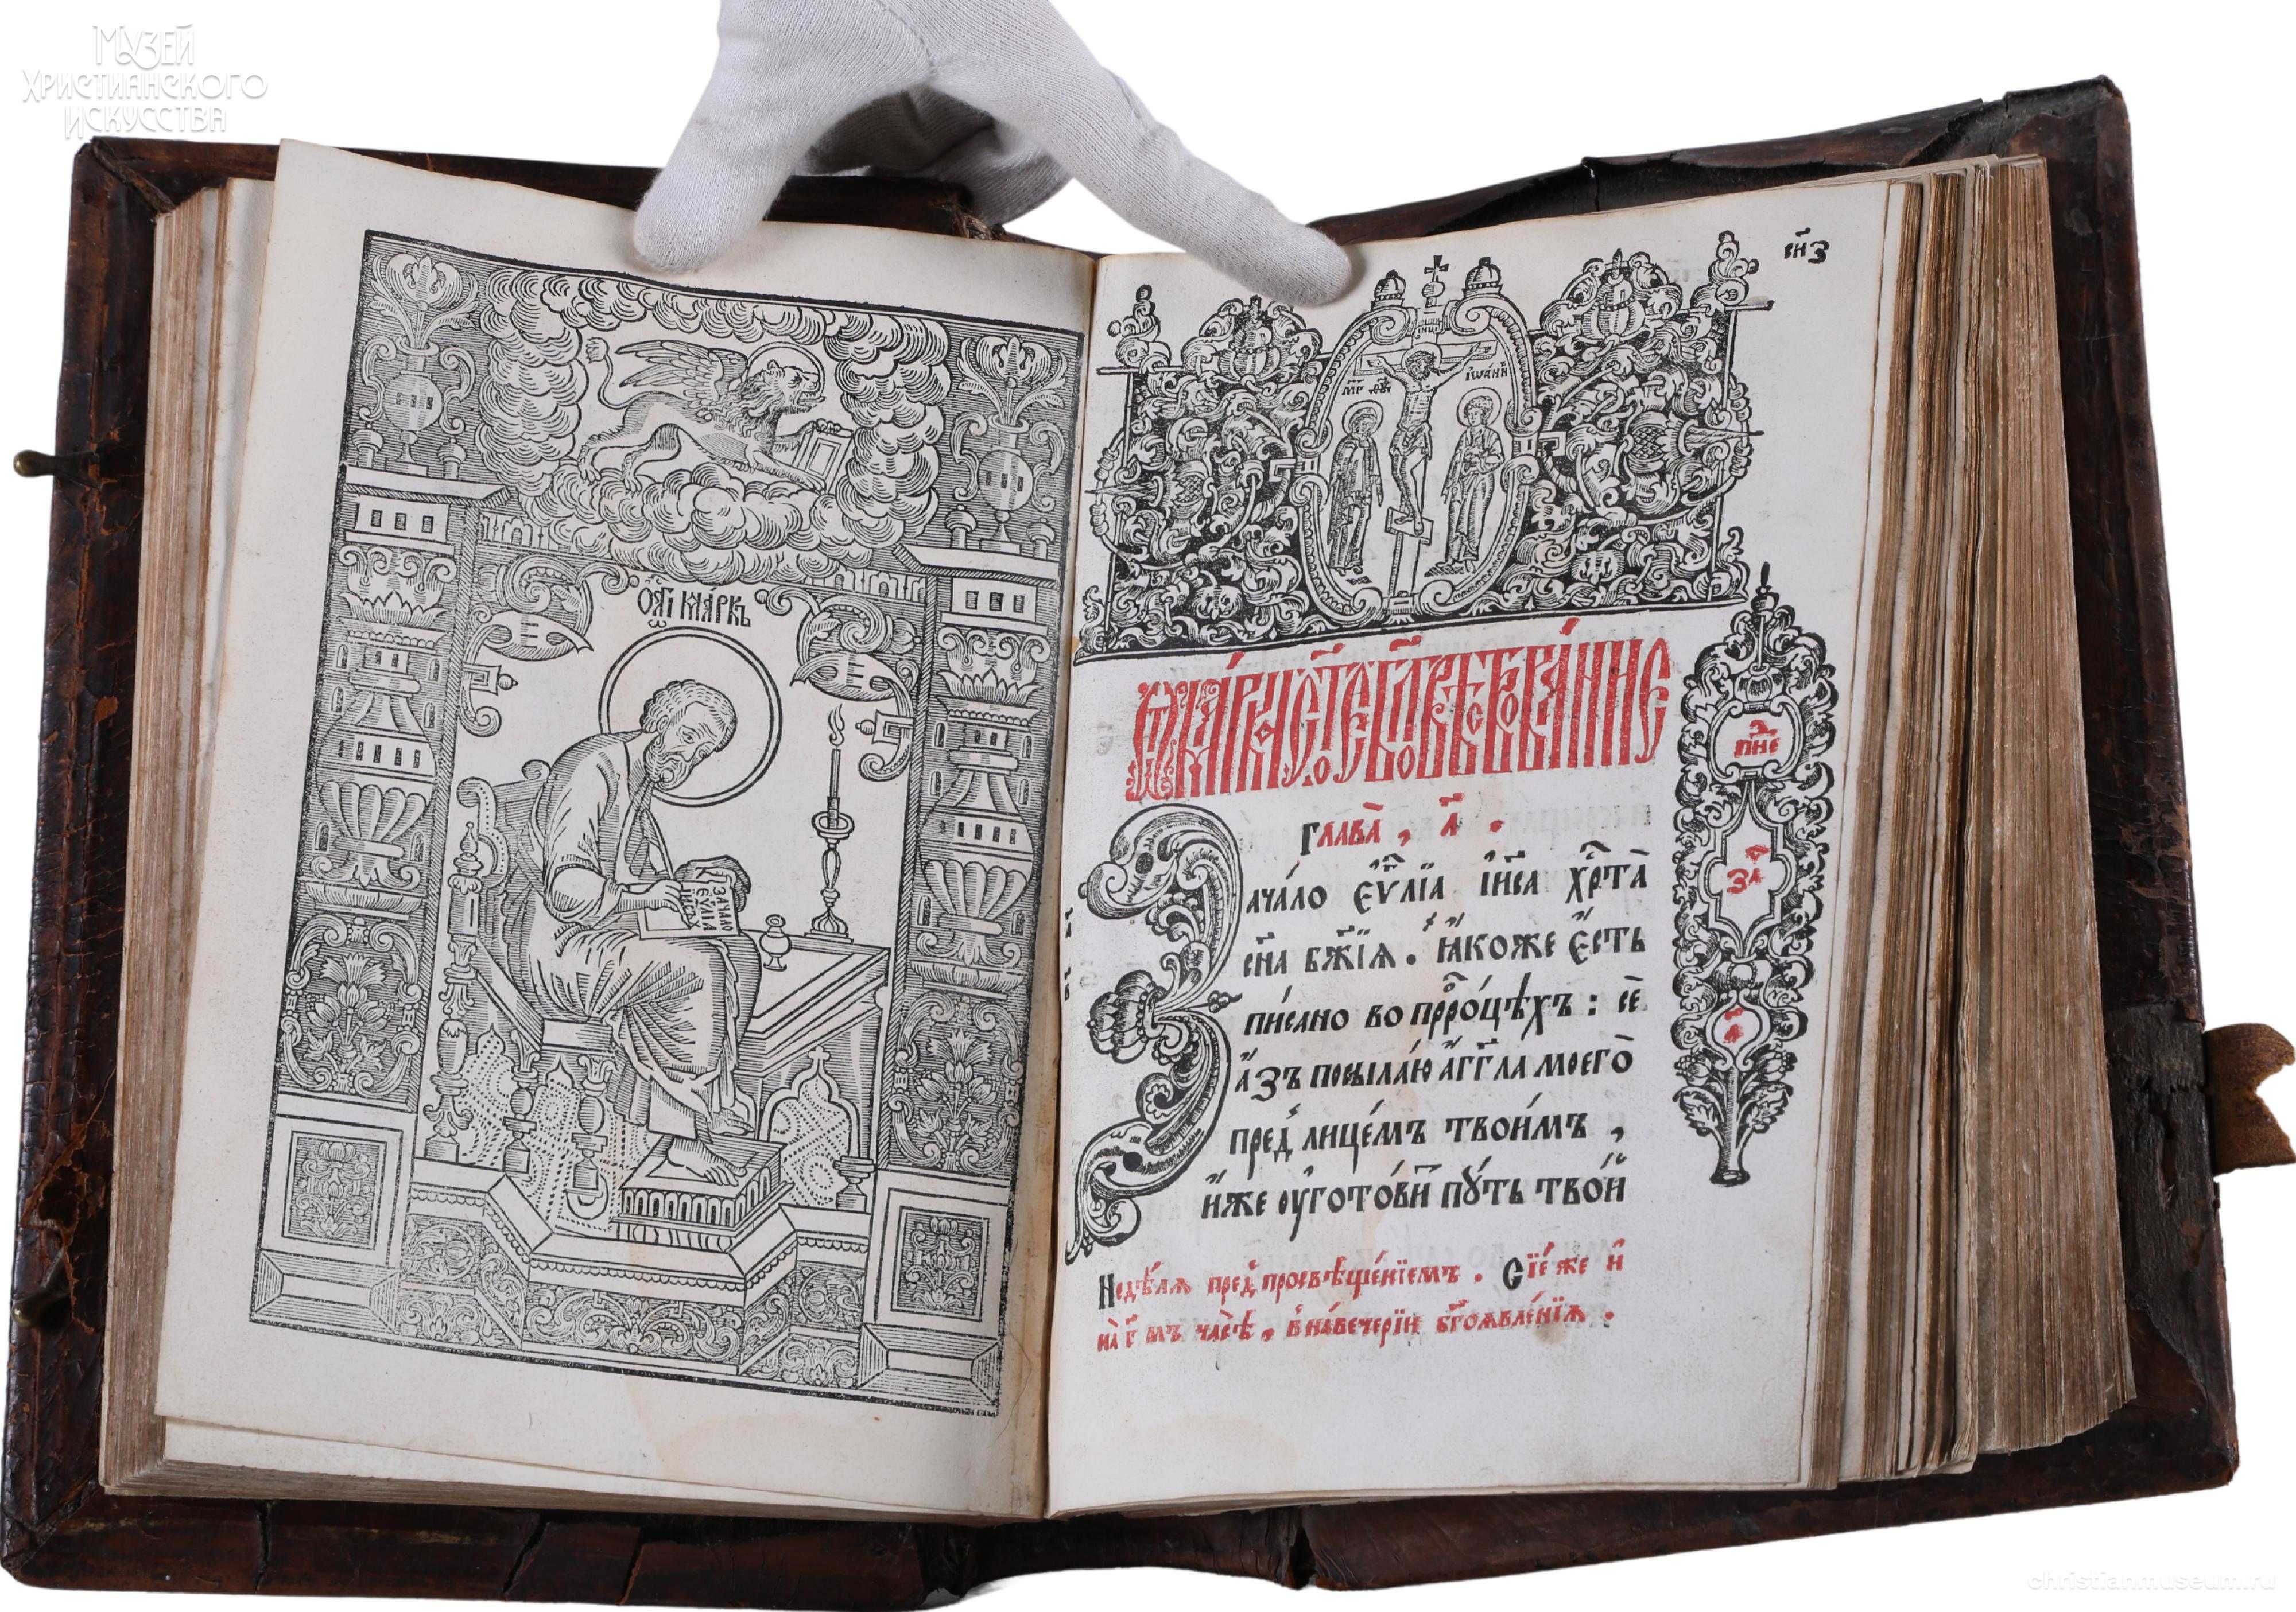 Музей
Христианского
искусства
ѡ҆́агі маркъ
Зачало
еѵ҃лїа
іи҃са х҃
і҃нці
м҃р ѳ҃ѵ
іѡа́нн
с҃нз
Ѿ ма́рка ст҃о́е бл҃говѣствова́нїе
Глава̀, а҃.
Зача́ло є҆ѵⷢ҇лїа і҆и҃са хрⷭ҇та̀
сн҃а бж҃їѧ. ꙗ҆́коже є҆́сть
пи́сано во прⷪ҇ро́цѣхъ : сѐ
а҆́зъ посыла́ю а҆́гг҃ла моего̀
пред̾ лице́мъ твои́мъ,
и҆́же ᲂу҆гото́витъ пꙋ́ть тво́й
Недѣ́лѧ пред̾ просвѣще́нїемъ. Сїе́ же и҆
на г҃мъ часѣ̀, в наве́черїи бг҃оѧвле́нїѧ.
за҃
а҃
christianmuseum.ru